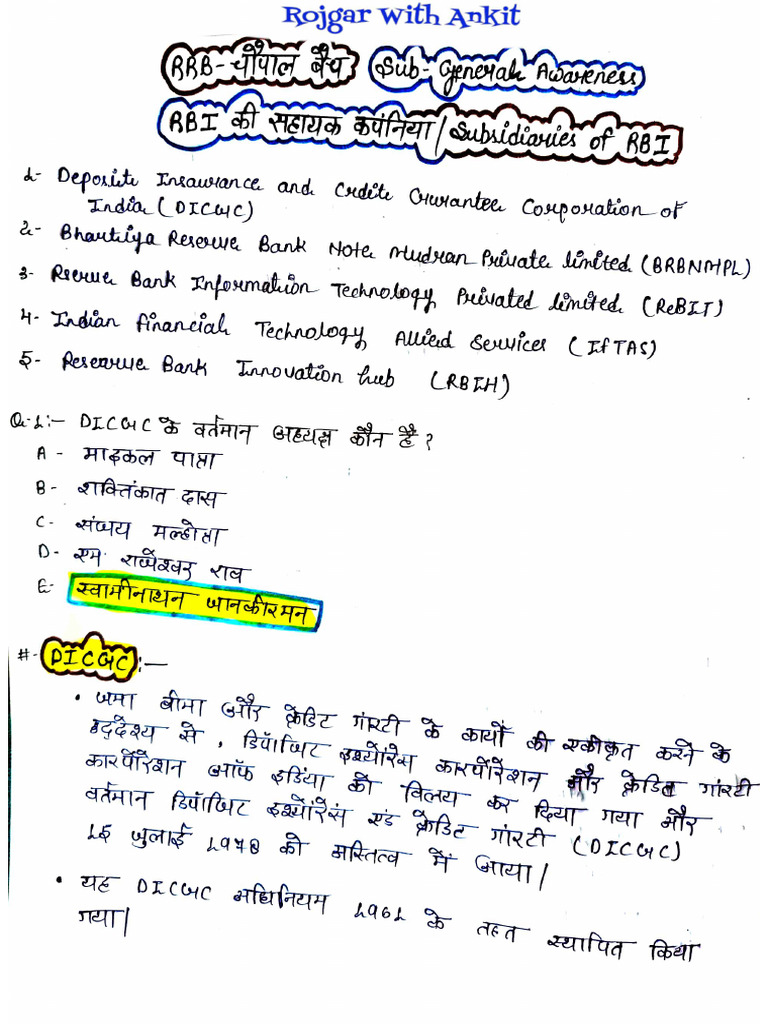 Rojgar With Ankit
RRB-चौपाल बैच Sub- General Awareness
RBI की सहायक कंपनिया/Subsidiaries of RBI
1- Deposite Insaurance and Credite Gurantee Corporation of
India (DICGC)
2- Bhartiya Reserve Bank Note Mudran Private limited (BRBNMPL)
3- Rserve Bank Information Technology Privated limited (ReBIT)
4- Indian financial Technology Allied Services (IfTAS)
5- Reserve Bank Innovation hub (RBIH)
Q-1:- DICGC के वर्तमान अध्यक्ष कौन है?
A- माइकल पात्रा
B- शक्तिंकात दास
C- संजय मल्होत्रा
D- एम. राजेश्वर राव
E- स्वामीनाथन जानकीरमन
#- DICGC:-
• जमा बीमा और क्रेडिट गांरटी के कार्यो की एकीकृत करने के
उद्देश्य से, डिपॉजिट इंश्योरेंस कारर्पोरेशन और क्रेडिट गांरटी
कारर्पोरेशन ऑफ इंडिया को विलय कर दिया गया और
वर्तमान डिपॉजिट इंश्योरेंस एंड क्रेडिट गांरटी (DICGC)
15 जुलाई 1978 को अस्तित्व में आया|
• यह DICGC अधिनियम 1961 के तहत स्थापित किया
गया|